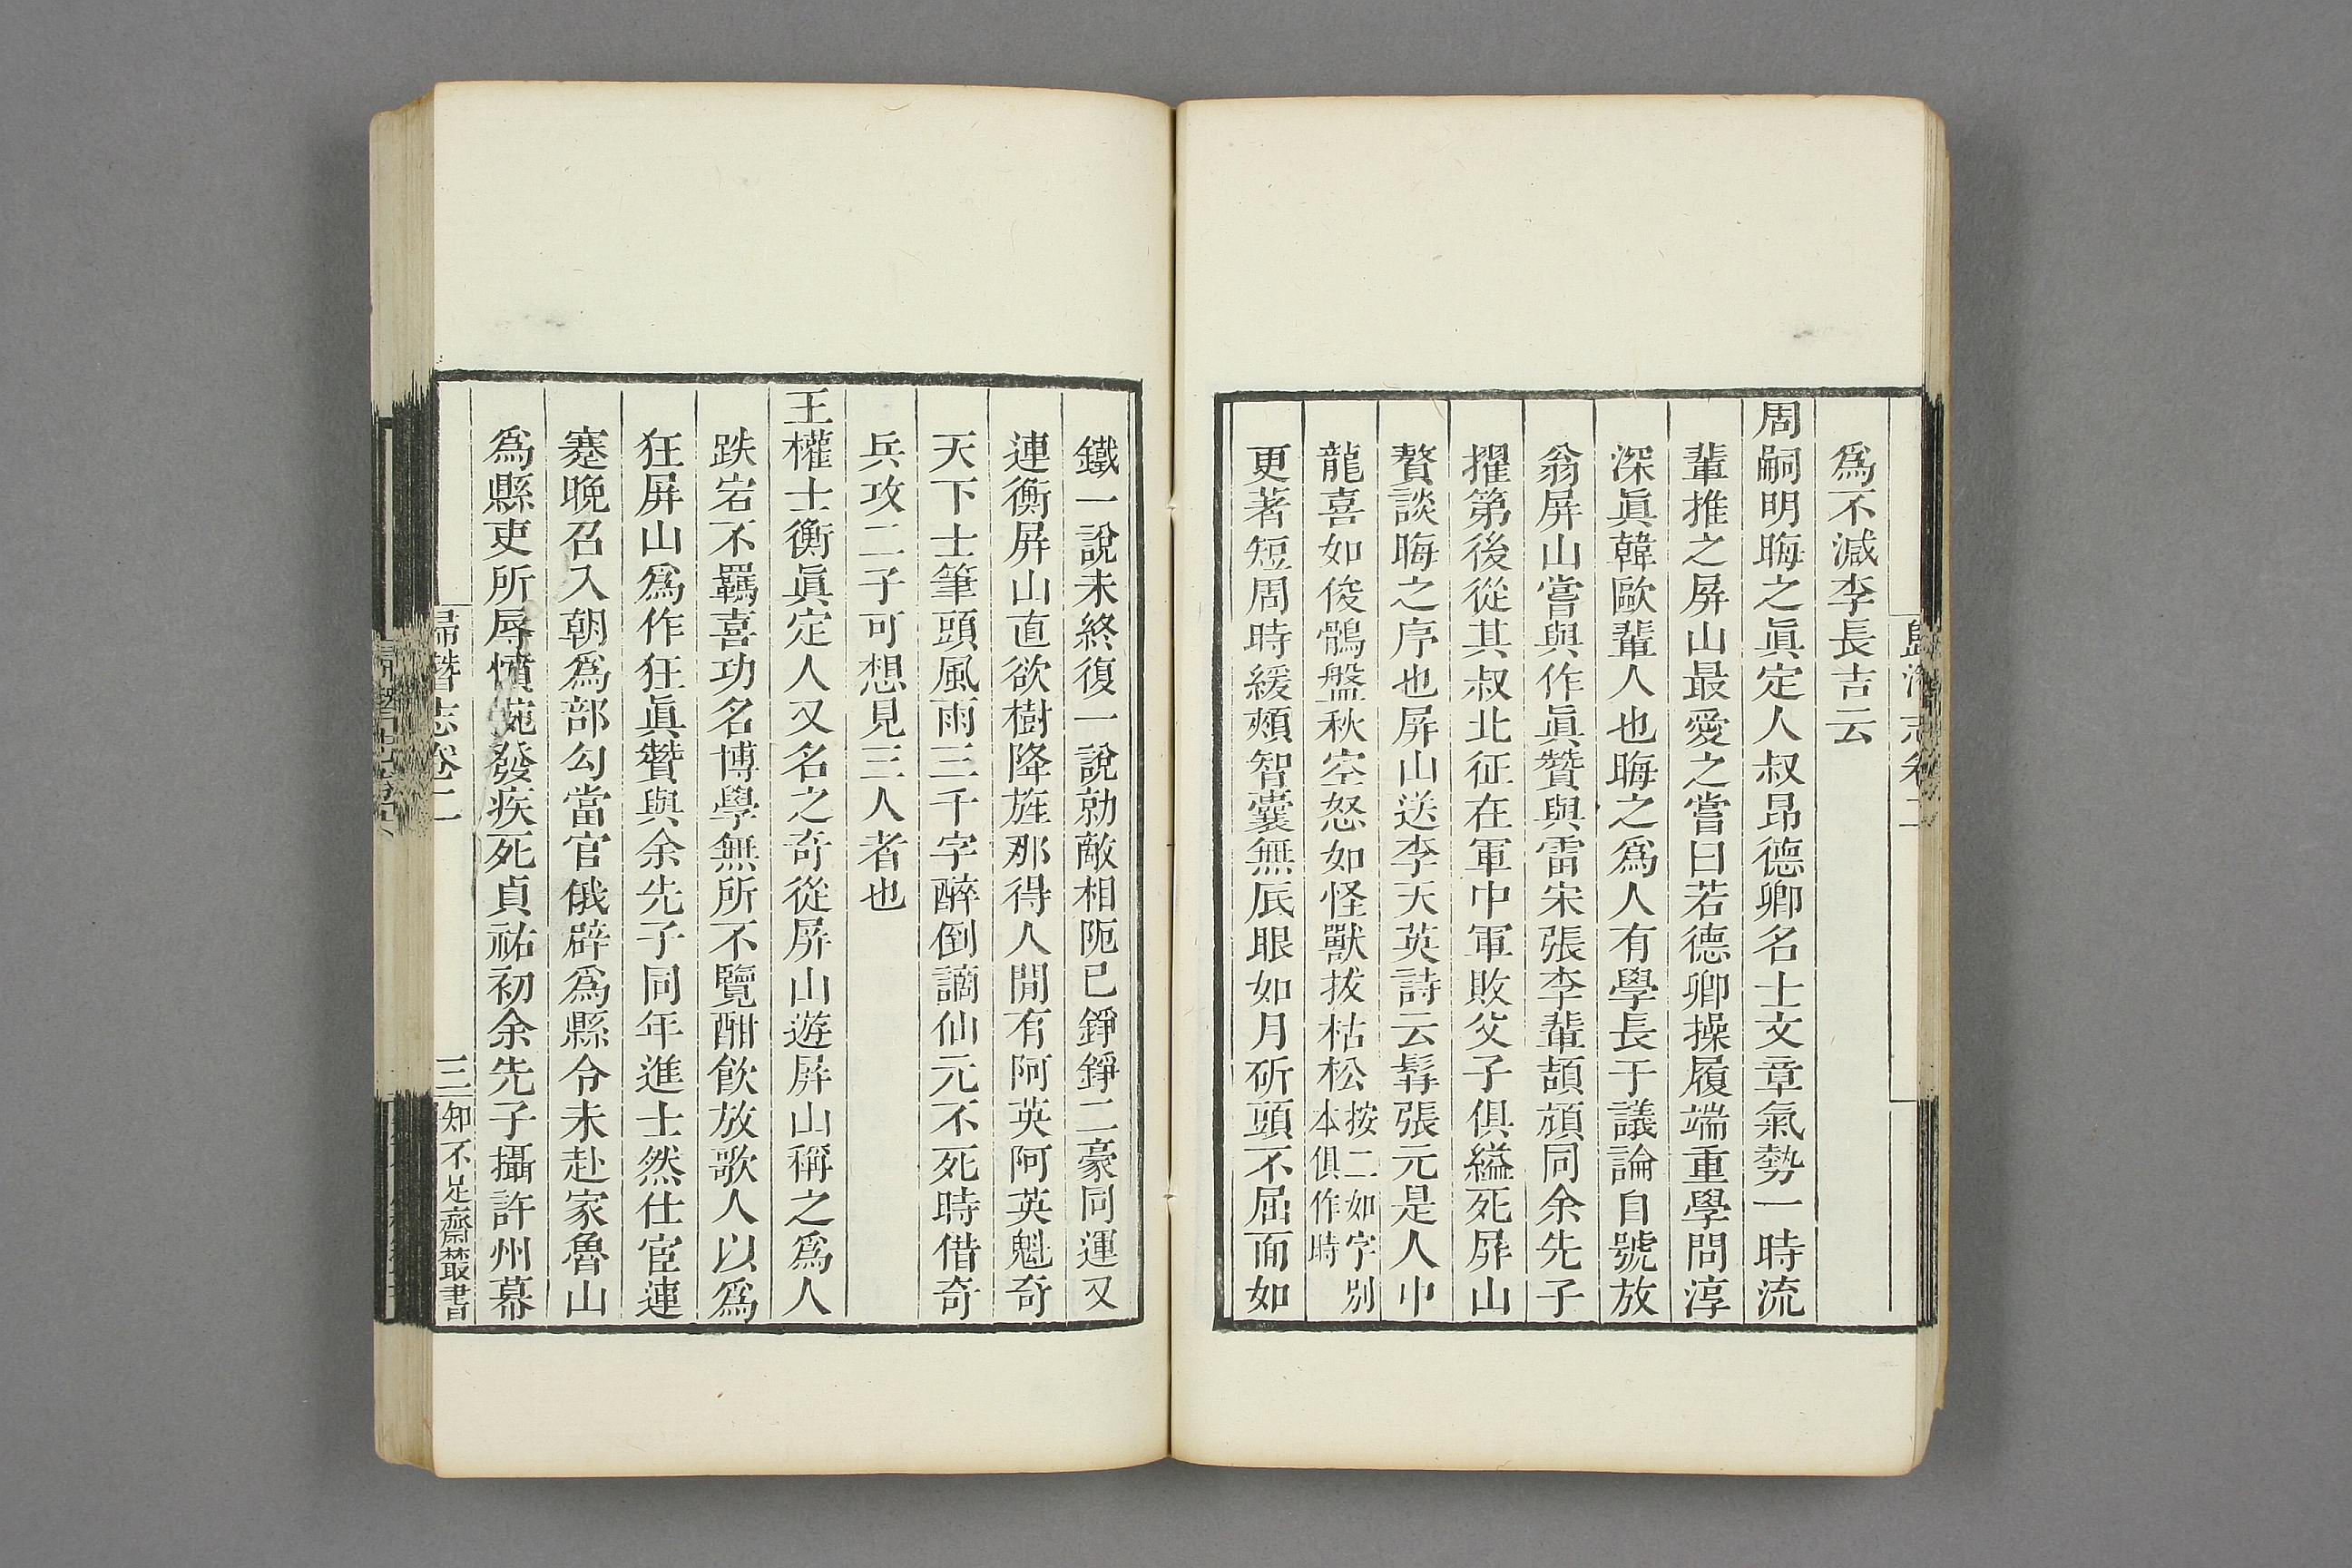 爲不減李長吉云
周嗣明晦之眞定人叔昂德卿名士文章氣勢一時流
輩推之屏山最愛之嘗曰若德卿操履端重學問淳
深眞韓歐輩人也晦之爲人有學長于議論自號放
翁屏山嘗與作眞贊與雷宋張李輩頡頏同余先子
擢第後從其叔北征在軍中軍敗父子俱縊死屏山
贅談晦之序也屏山送李天英詩云髯張元是人中
龍喜如俊鶻盤秋空怒如怪獸拔枯松按二如字別
本俱作時
更著短周時緩頰智囊無底眼如月斫頭不屈面如
鐵一說未終復一說勍敵相阨已錚錚二豪同運又
連衡屏山直欲樹降旌那得人閒有阿英阿英魁奇
天下士筆頭風雨三千字醉倒謫仙元不死時借奇
兵攻二子可想見三人者也
王權士衡眞定人又名之奇從屏山遊屏山稱之爲人
跌宕不羈喜功名博學無所不覽酣飮放歌人以爲
狂屏山爲作狂眞贊與余先子同年進士然仕宦連
蹇晚召入朝爲部勾當官俄辟爲縣令未赴家魯山
爲縣吏所辱憤惋發疾死貞祐初余先子攝許州幕
歸潛志卷二
三
知不足齋叢書